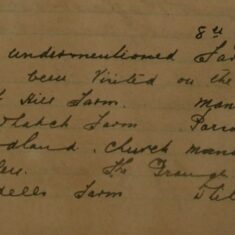 8th
undermentioned Far
been Visited on the
Hill Farm. Man
Thatch Farm Parso
odland. Church Mano
The Grange
dells Farm